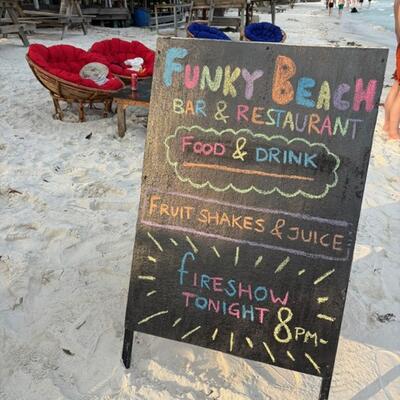 Funky Beach
BAR & RESTAURANT
FOOD & DRINK
FRUIT SHAKES & JUICE
fIRESHOW
TONIGHT 8PM-